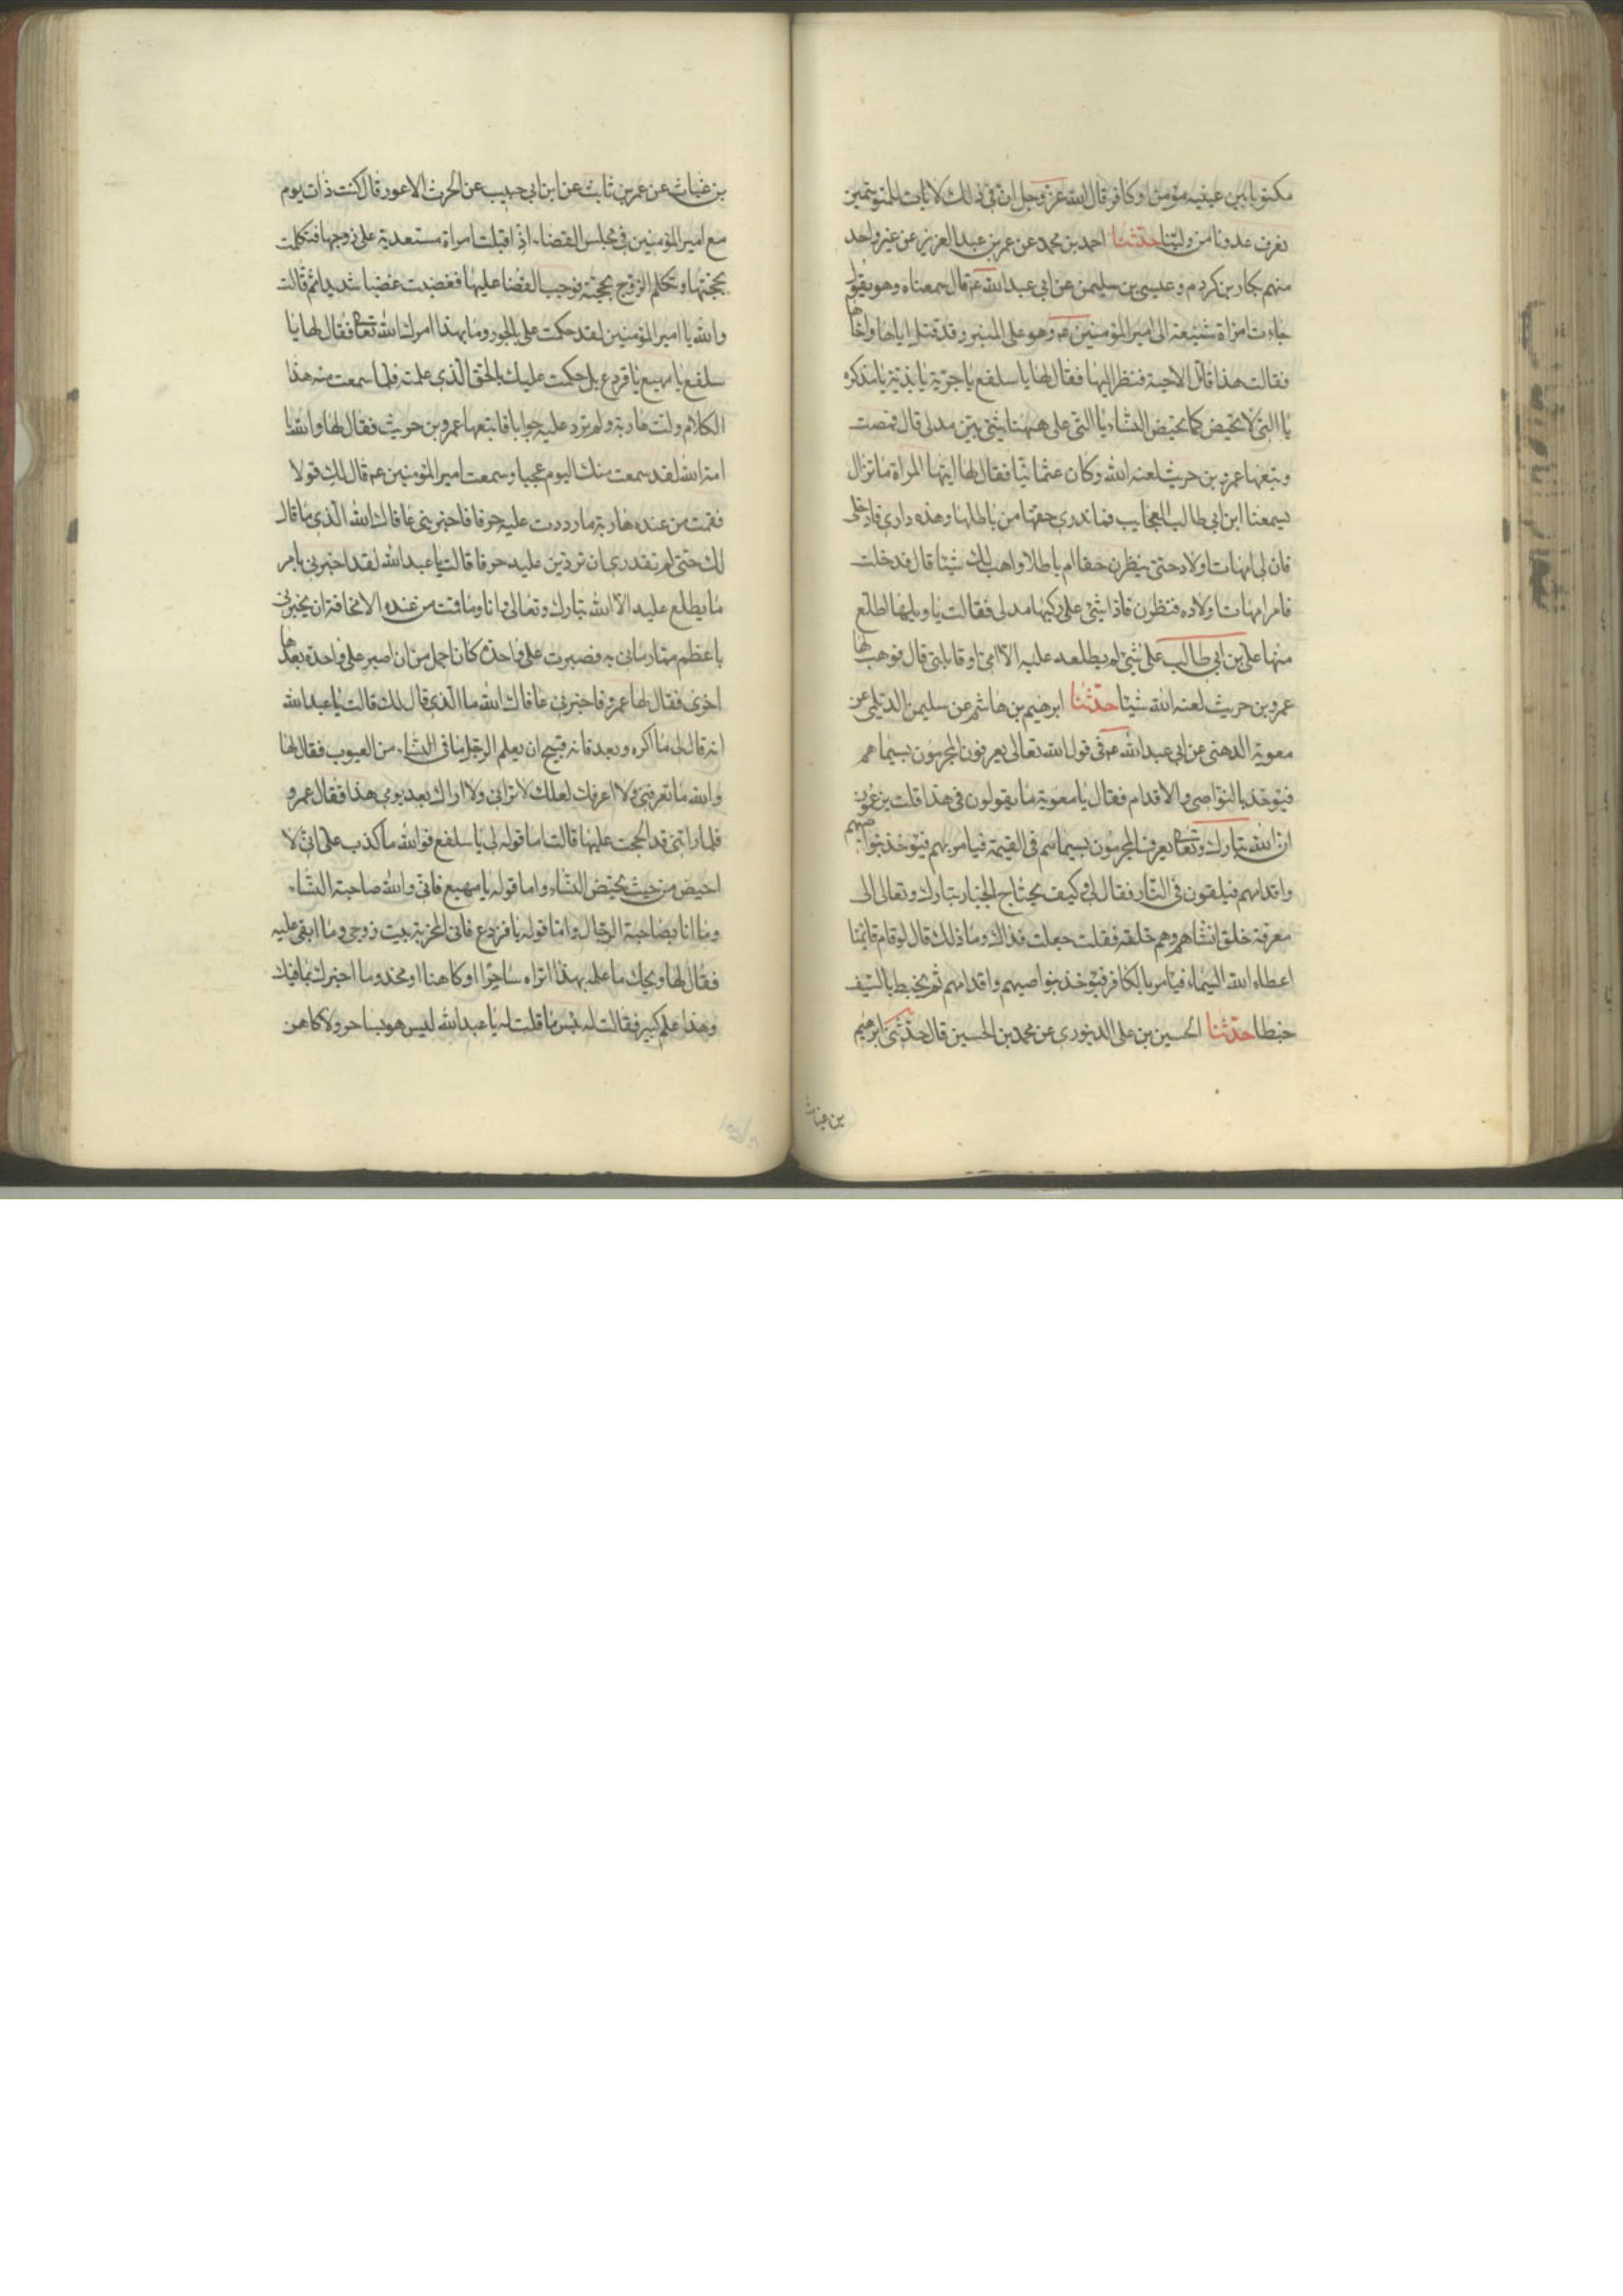 مكتوبا بين عينيه مؤمن او كافر قال الله عز وجل ان في ذلك لايات للمتوسمين
نعرف عدونا من ولينا حدثنا احمد بن محمد عن عمر بن عبد العزيز عن غير واحد
منهم بكار بن كردم وعيسى بن سليمن عن ابي عبد الله عم قال سمعناه وهو يقول
جاءت امراة شنيعة الى امير المؤمنين عم وهو على المنبر وقد قتل اباها واخاها
فقالت هذا قاتل الاحبة فنظر اليها فقال لها يا سلفع يا جرية يا بذية يا مذكره
يا التي لا تحيض كما تحيض النساء يا التي على هنها شئ بين مدلى قال فمضت
وتبعها عمرو بن حريث لعنه الله وكان عثمانيا فقال لها ايتها المراة ما نزال
يسمعنا ابن ابي طالب العجايب فما ندري حقها من باطلها وهذه داري فادخلي
فان لي امهات اولاد حتى ينظرن حقا ام باطلا واهب لك شيئا قال فدخلت
فامر امهات اولاده فنظرن فاذا شئ على ركبها مدلى فقالت يا ويلها اطلع
منها علي بن ابي طالب على شئ لم يطلعه عليه الا امي او قابلتي قال فوهب لها
عمرو بن حريث لعنه الله شيئا حدثنا ابرهيم بن هاشم عن سليمن الديلمي عن
معوية الدهني عن ابي عبد الله عم في قول الله تعالى يعرفون المجرمون بسيماهم
فيؤخذ بالنواصي والاقدام فقال يا معوية ما يقولون في هذا قلت يزعمون
ان الله تبارك وتعالى يعرف المجرمون بسيماهم في القيمة فيامر بهم فيؤخذ بنواصيهم
واقدامهم فيلقون في النار فقال لي كيف يحتاج الجبار تبارك وتعالى الى
معرفة خلق انشاهم وهم خلقه فقلت جعلت فداك وما ذلك قال لو قام قائمنا
اعطاه الله السيماء فيامر بالكافر فيؤخذ بنواصيهم واقدامهم ثم يخبط بالسيف
خبطا حدثنا الحسين بن علي الدينوري عن محمد بن الحسين قال حدثني ابرهيم
بن غياث
بن غياث عن عمر بن ثابت عن ابن ابي حبيب عن الحرث الاعور قال كنت ذات يوم
مع امير المؤمنين في مجلس القضاء اذ اقبلت امراة مستعدية على زوجها فتكلمت
بحجتها وتكلم الزوج بحجته فوجب القضا عليها فغضبت غضبا شديدا ثم قالت
والله يا امير المؤمنين لقد حكمت علي بالجور وما بهذا امرك الله تعالى فقال لها يا
سلفع يا مهيع يا قردع بل حكمت عليك بالحق الذي علمته فلما سمعت منه هذا
الكلام ولت هاربة ولم ترد عليه جوابا فاتبعها عمرو بن حريث فقال لها والله يا
امة الله لقد سمعت منك اليوم عجبا وسمعت امير المؤمنين عم قال لك قولا
فقمت من عنده هاربة ما رددت عليه حرفا فاخبريني عافاك الله الذي ما قال
لك حتى لم تقدري ان تردين عليه حرفا قالت يا عبد الله لقد اخبرني بامر
ما يطلع عليه الا الله تبارك وتعالى وانا وما قمت من عنده الا مخافة ان يخبرني
باعظم مما رماني به فصبرت على واحدة كان اجمل من ان اصبر على واحدة بعدها
اخرى فقال لها عمرو فاخبريني عافاك الله ما الذي قال لك قالت يا عبد الله
انه قال لي ما اكره وبعد فانه قبيح ان يعلم الرجل ما في النساء من العيوب فقال لها
والله ما تعرفني ولا اعرفك لعلك لا تراني ولا اراك بعد يومي هذا فقال عمرو
فلما راتني قد الححت عليها قالت اما قوله لي يا سلفع فوالله ما كذب علي اني لا
احيض من حيث تحيض النساء واما قوله يا مهيع فاني والله صاحبة النساء
وما انا بصاحبة الرجال واما قوله يا قردع فاني المخربة بيت زوجي وما ابقي عليه
فقال لها ويحك ما علمه بهذا اتراه ساحرا او كاهنا او مخدوما اخبرك بما فيك
وهذا علم كبير فقالت له بئس ما قلت له يا عبد الله ليس هو بساحر ولا كاهن